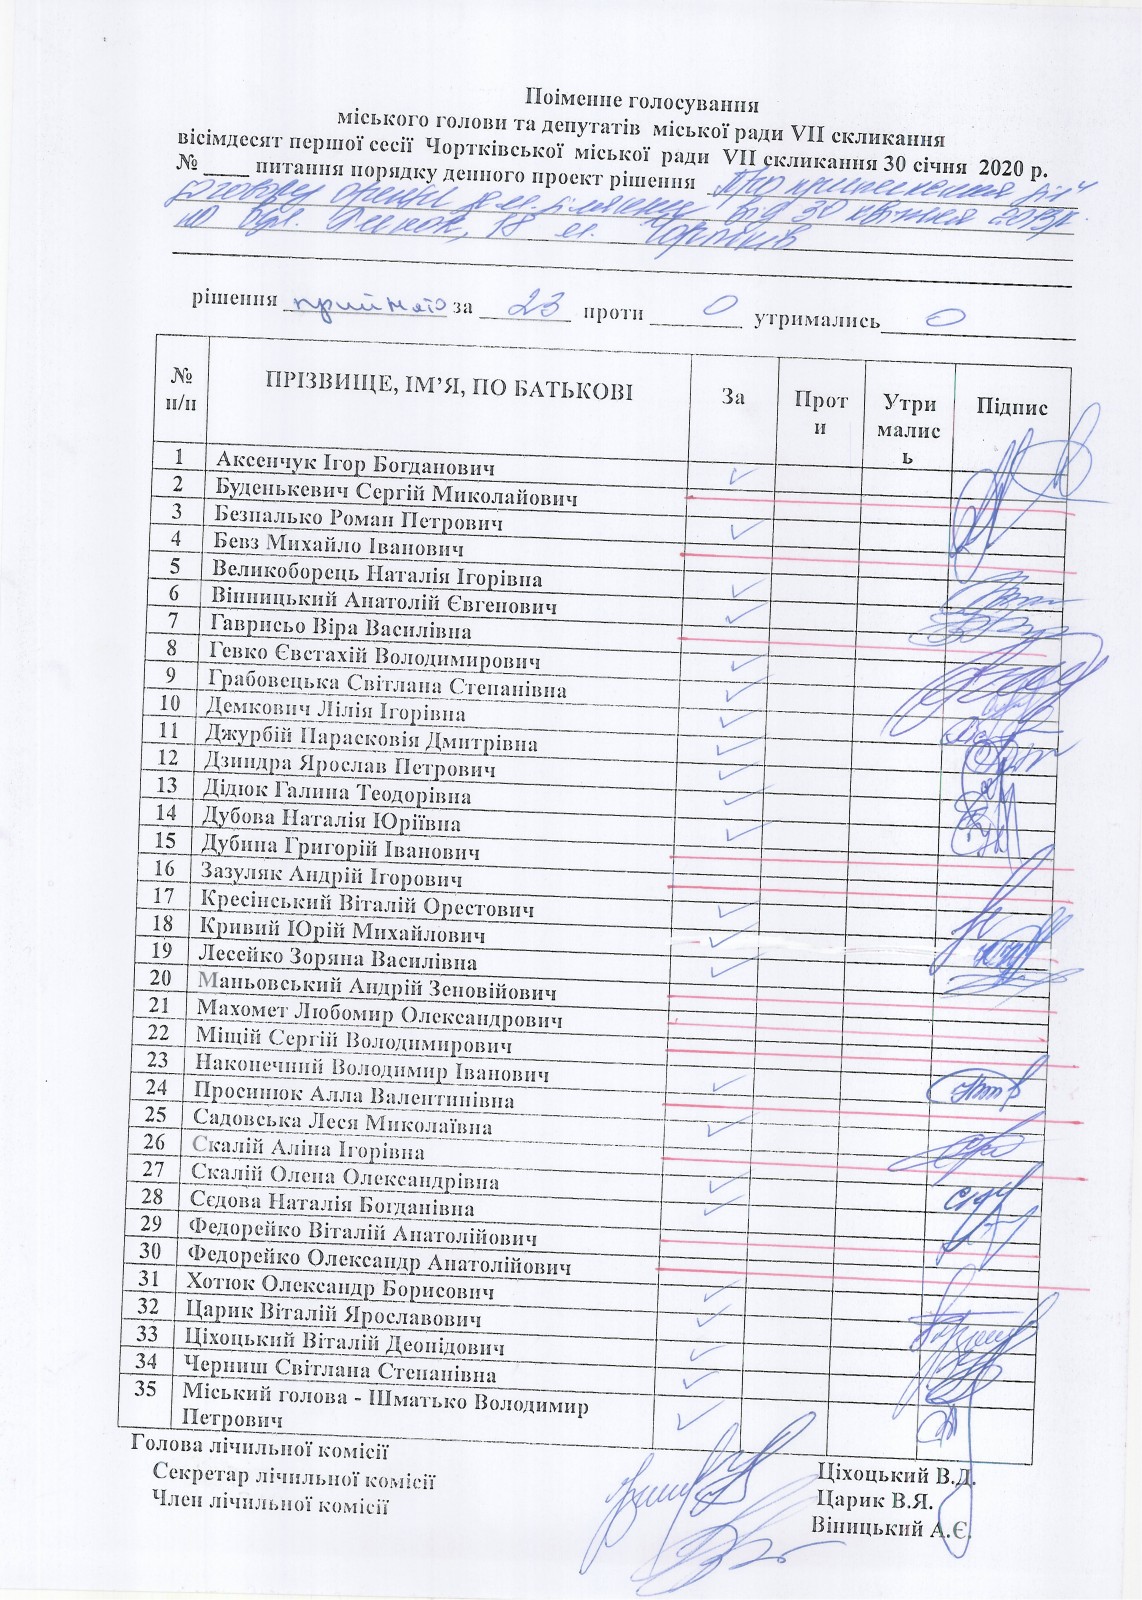 Поіменне голосування
міського голови та депутатів міської ради VII скликання
вісімдесят першої сесії Чортківської міської ради VII скликання 30 січня 2020 р.
№ ____ питання порядку денного проект рішення Про припинення дії
договору оренди зем. ділянки від 30 квітня 2013р.
по вул. 18 м. Чортків
рішення прийнято за 23 проти 0 утримались 0
№ п/п ПРІЗВИЩЕ, ІМ’Я, ПО БАТЬКОВІ За Проти Утрималисьь Підпис
1 Аксенчук Ігор Богданович ✓
2 Буденькевич Сергій Миколайович
3 Безпалько Роман Петрович ✓
4 Бевз Михайло Іванович
5 Великоборець Наталія Ігорівна ✓
6 Вінницький Анатолій Євгенович ✓
7 Гаврисьо Віра Василівна
8 Гевко Євстахій Володимирович ✓
9 Грабовецька Світлана Степанівна ✓
10 Демкович Лілія Ігорівна ✓
11 Джурбій Парасковія Дмитрівна ✓
12 Дзиндра Ярослав Петрович ✓
13 Дідюк Галина Теодорівна ✓
14 Дубова Наталія Юріївна ✓
15 Дубина Григорій Іванович
16 Зазуляк Андрій Ігорович
17 Кресінський Віталій Орестович ✓
18 Кривий Юрій Михайлович ✓
19 Лесейко Зоряна Василівна ✓
20 Маньовський Андрій Зеновійович
21 Махомет Любомир Олександрович
22 Міщій Сергій Володимирович
23 Наконечний Володимир Іванович ✓
24 Просинюк Алла Валентинівна
25 Садовська Леся Миколаївна ✓
26 Скалій Аліна Ігорівна
27 Скалій Олена Олександрівна ✓
28 Сєдова Наталія Богданівна ✓
29 Федорейко Віталій Анатолійович
30 Федорейко Олександр Анатолійович
31 Хотюк Олександр Борисович ✓
32 Царик Віталій Ярославович ✓
33 Ціхоцький Віталій Деонідович ✓
34 Черниш Світлана Степанівна ✓
35 Міський голова - Шматько Володимир ✓
Петрович
Голова лічильної комісії Ціхоцький В.Д.
Секретар лічильної комісії Царик В.Я.
Член лічильної комісії Віницький А.Є.